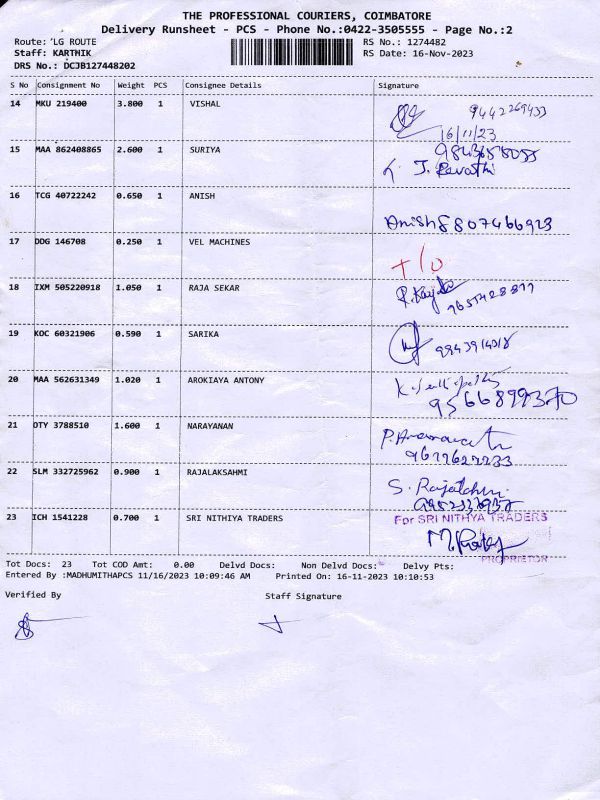 THE PROFESSIONAL COURIERS, COIMBATORE
Delivery Runsheet - PCS - Phone No.:0422-3505555 - Page No.:2
Route: 'LG ROUTE RS No.: 1274482
Staff: KARTHIK RS Date: 16-Nov-2023
DRS No.: DCJB127448202
S No Consignment No Weight PCS Consignee Details Signature
14 MKU 219400 3.800 1 VISHAL 9442269433
16/11/23
15 MAA 862408865 2.600 1 SURIYA
J. Revathi
16 TCG 40722242 0.650 1 ANISH
Anish 8807466923
17 DDG 146708 0.250 1 VEL MACHINES
T/O
18 IXM 505220918 1.050 1 RAJA SEKAR
19 KOC 60321906 0.590 1 SARIKA
20 MAA 562631349 1.020 1 AROKIAYA ANTONY
9566899370
21 OTY 3788510 1.600 1 NARAYANAN
22 SLM 332725962 0.900 1 RAJALAKSAHMI
S. Rajalakshmi
23 ICH 1541228 0.700 1 SRI NITHIYA TRADERS For SRI NITHYA TRADERS
PROPRIETOR
Tot Docs: 23 Tot COD Amt: 0.00 Delvd Docs: Non Delvd Docs: Delvy Pts:
Entered By :MADHUMITHAPCS 11/16/2023 10:09:46 AM Printed On: 16-11-2023 10:10:53
Verified By Staff Signature